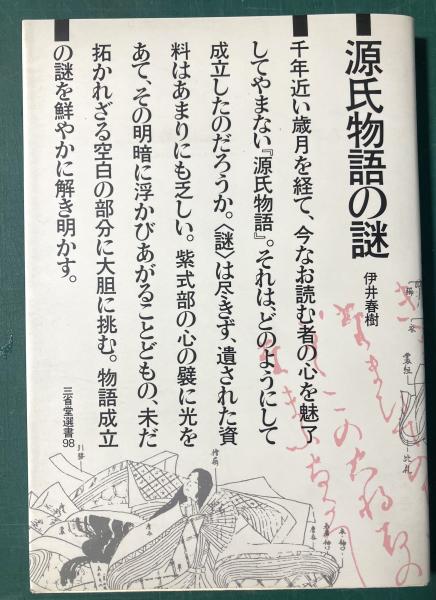 源氏物語の謎
伊井春樹
千年近い歳月を経て、今なお読む者の心を魅了
してやまない『源氏物語』。それは、どのようにして
成立したのだろうか。〈謎〉は尽きず、遺された資
料はあまりにも乏しい。紫式部の心の襞に光を
あて、その明暗に浮かびあがることどもの、未だ
拓かれざる空白の部分に大胆に挑む。物語成立
の謎を鮮やかに解き明かす。
三省堂選書98
檜扇